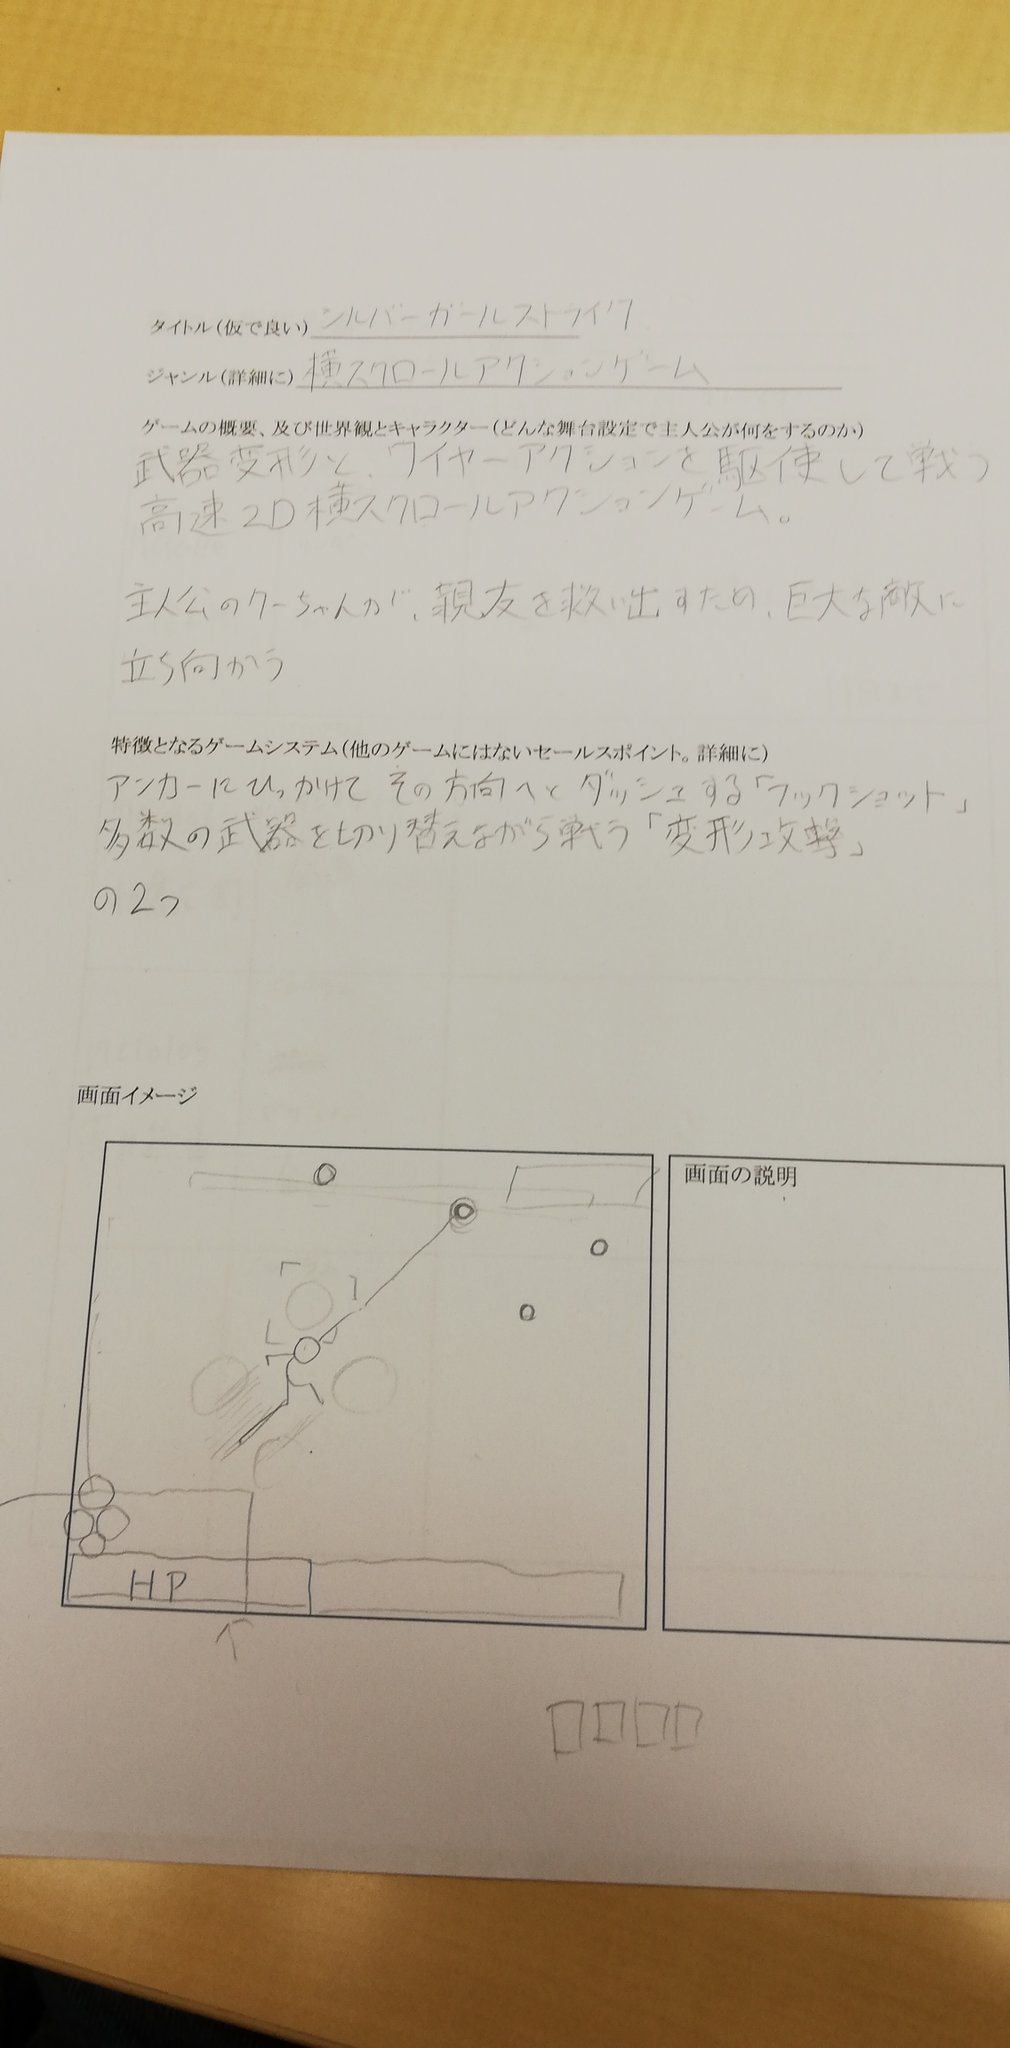 タイトル(仮で良い) シルバーガールストライク
ジャンル(詳細に) 横スクロールアクションゲーム
ゲームの概要、及び世界観とキャラクター(どんな舞台設定で主人公が何をするのか)
武器変形と、ワイヤーアクションを駆使して戦う
高速2D横スクロールアクションゲーム。
主人公のクーちゃんが、親友を救い出すため、巨大な敵に
立ち向かう
特徴となるゲームシステム(他のゲームにはないセールスポイント。詳細に)
アンカーにひっかけて その方向へと ダッシュする「フックショット」
多数の武器を切り替えながら戦う「変形攻撃」
の2つ
画面イメージ
画面の説明
HP